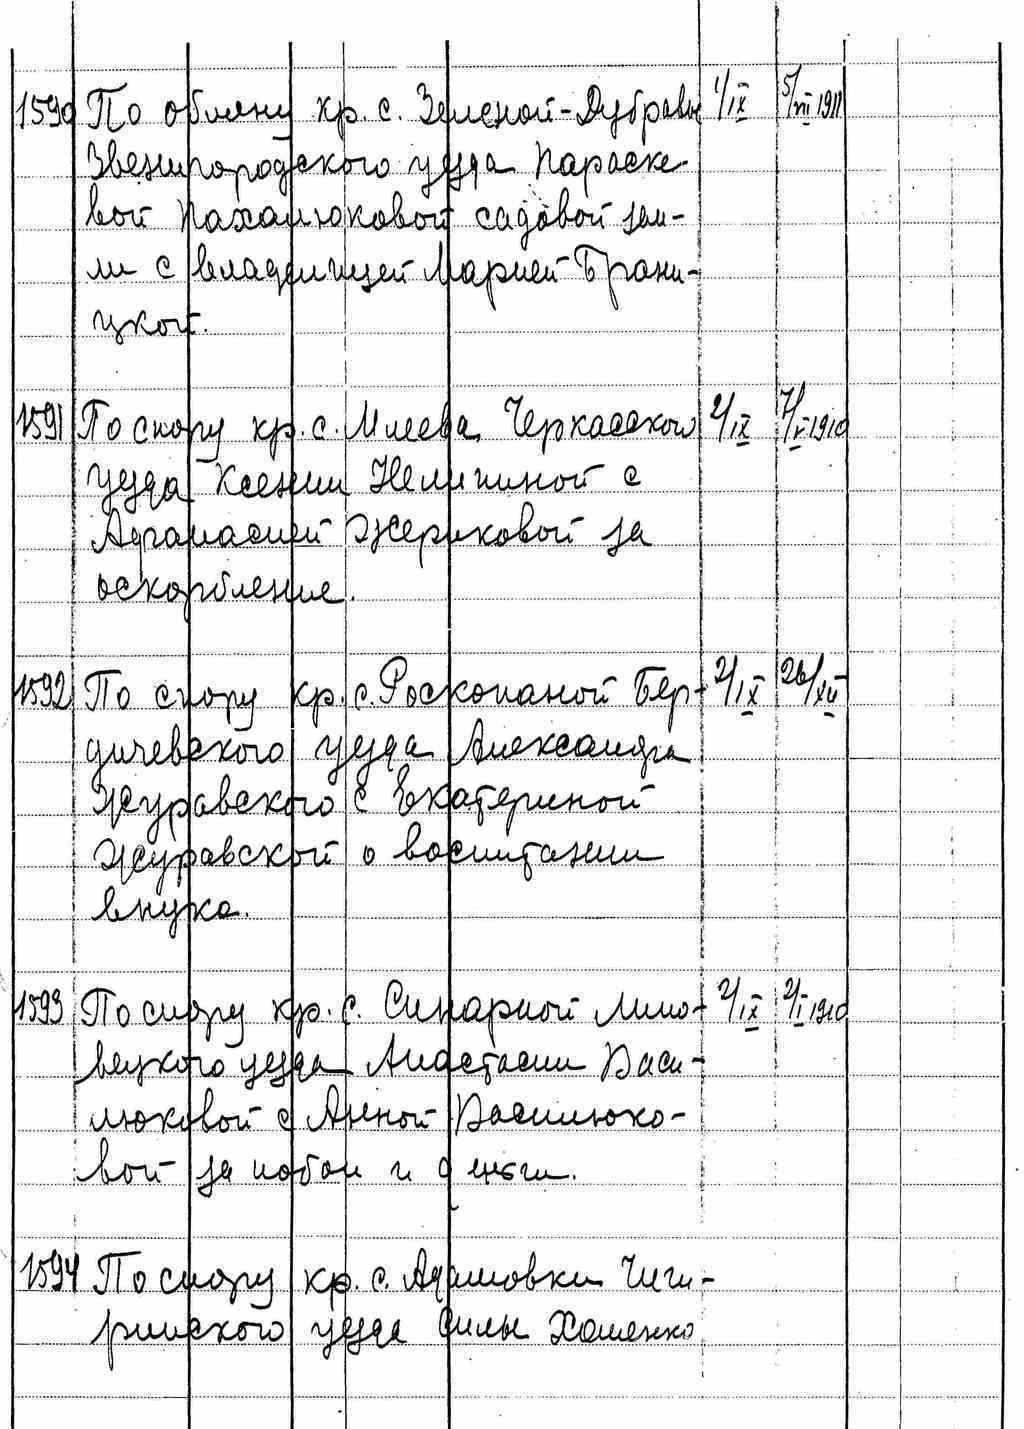 1590 По обмену кр. с. Зеленой-Дубравы 1/IX 5/VII 1911
Звенигородского уезда Параске-
вой Пахолюковой садовой зем-
ли с владелицей Марией Брани-
цкой.
1591 По спору кр. с. Млеева Черкасского 2/IX 7/V 1910
уезда Ксении Нелипиной с
Афанасией Жериковой за
оскорбление.
1592 По спору кр. с. Роскопаной Бер- 2/IX 26/XII
дичевского уезда Александра
Журавского с Екатериной
Журавской о воспитании
внука.
1593 По спору кр. с. Синарной Липо- 2/IX 2/I 1910
вецкого уезда Анастасии Васи-
люковой с Анной Василюко-
вой за побои и деньги.
1594 По спору кр. с. Адамовки Чиги-
ринского уезда Филы Хоменко